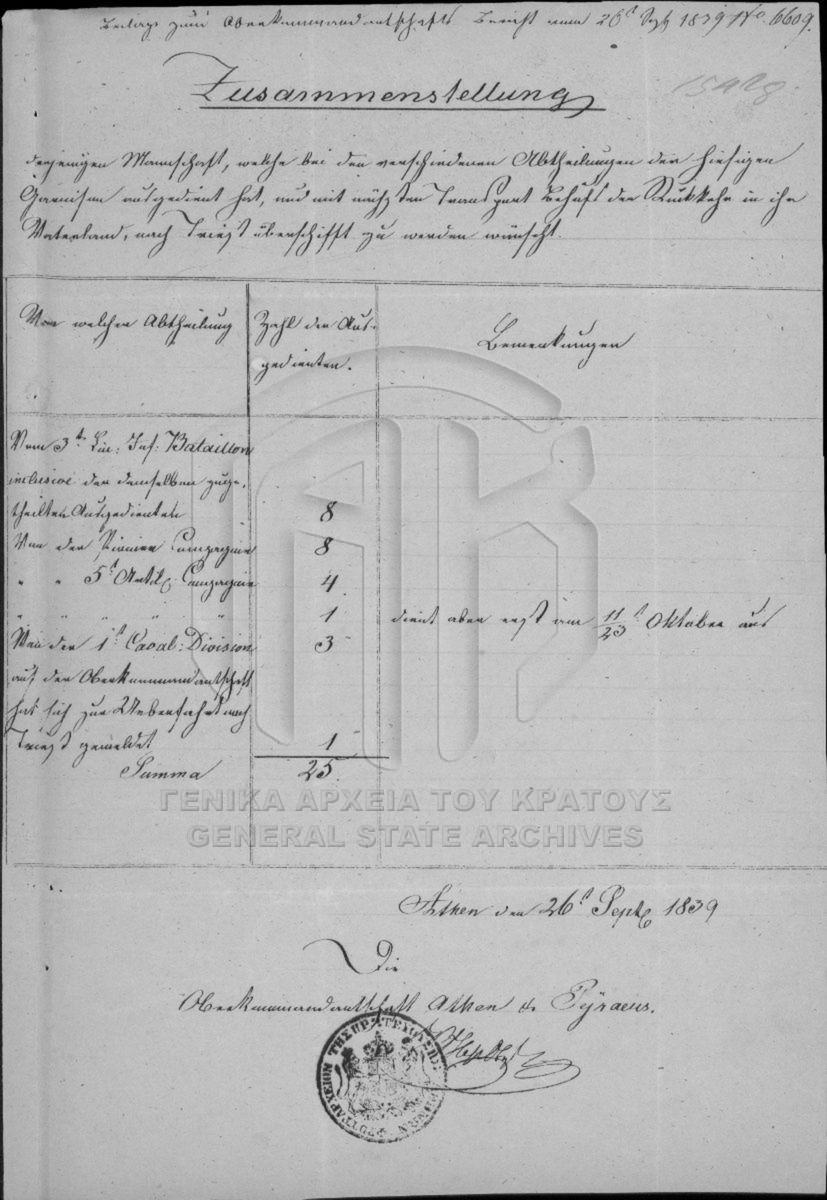 Beilage zum Oberkommandantschafts Bericht vom 26t Sept 1839 No. 6609.
15428
Zusammenstellung
derjenigen Mannschaft, welche bei den verschiedenen Abtheilungen der hiesigen
Garnison ausgedient hat, und mit nächsten Transport behufs der Rückkehr in ihr
Vaterland, nach Triest überschifft zu werden wünscht.
Von welcher Abtheilung
Zahl der Aus-
gedienten.
Bemerkungen
Vom 3ten Lin: Inf: Bataillon
inclusive der demselben zuge-
theilten Ausgedienten 8
Von der Pionier Compagnie 8
" " 5t Artil. Compagnie 4
" " " " " 1 dient aber erst am 11/23t Oktober aus
Von der 1t Caval: Division 3
auf der Oberkommandantschaft
hat sich zur Ueberfahrt nach
Triest gemeldet 1
Summa 25.
ΓΕΝΙΚΑ ΑΡΧΕΙΑ ΤΟΥ ΚΡΑΤΟΥΣ
GENERAL STATE ARCHIVES
Athen den 26t Sept. 1839
Die
Oberkommandantschaft Athen & Pyraeus.